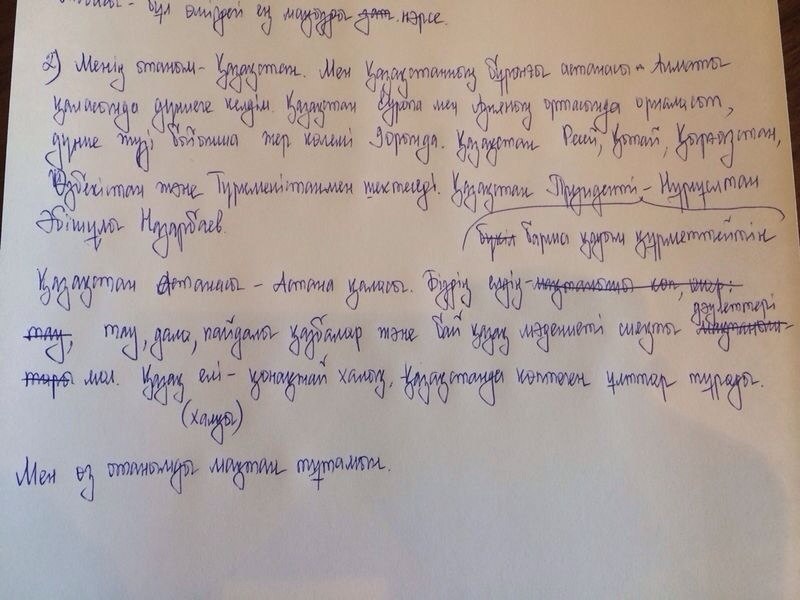 бұл өмірдегі ең маңызды нәрсе.
2) Менің отаным - Қазақстан. Мен Қазақстанның бұрынғы астанасы - Алматы
қаласында дүниеге келдім. Қазақстан Еуропа мен Азияның ортасында орналасып,
дүние жүзі бойынша жер көлемі 9орында. Қазақстан Ресей, Қытай, Қырғызстан,
Өзбекістан және Түркменістанмен шектеседі. Қазақстан Президенті - Нұрсұлтан
Әбішұлы Назарбаев. бүкіл барша қауым құрметтейтін
Қазақстан Астанасы - Астана қаласы. Біздің елдің -
дәулеттері
тау, тау, дала, пайдалы қазбалар және бай қазақ мәдениеті сияқты
мол. Қазақ елі - қонақжай халық, Қазақстанда көптеген ұлттар тұрады.
(халқы)
Мен өз отанымды мақтан тұтамын.